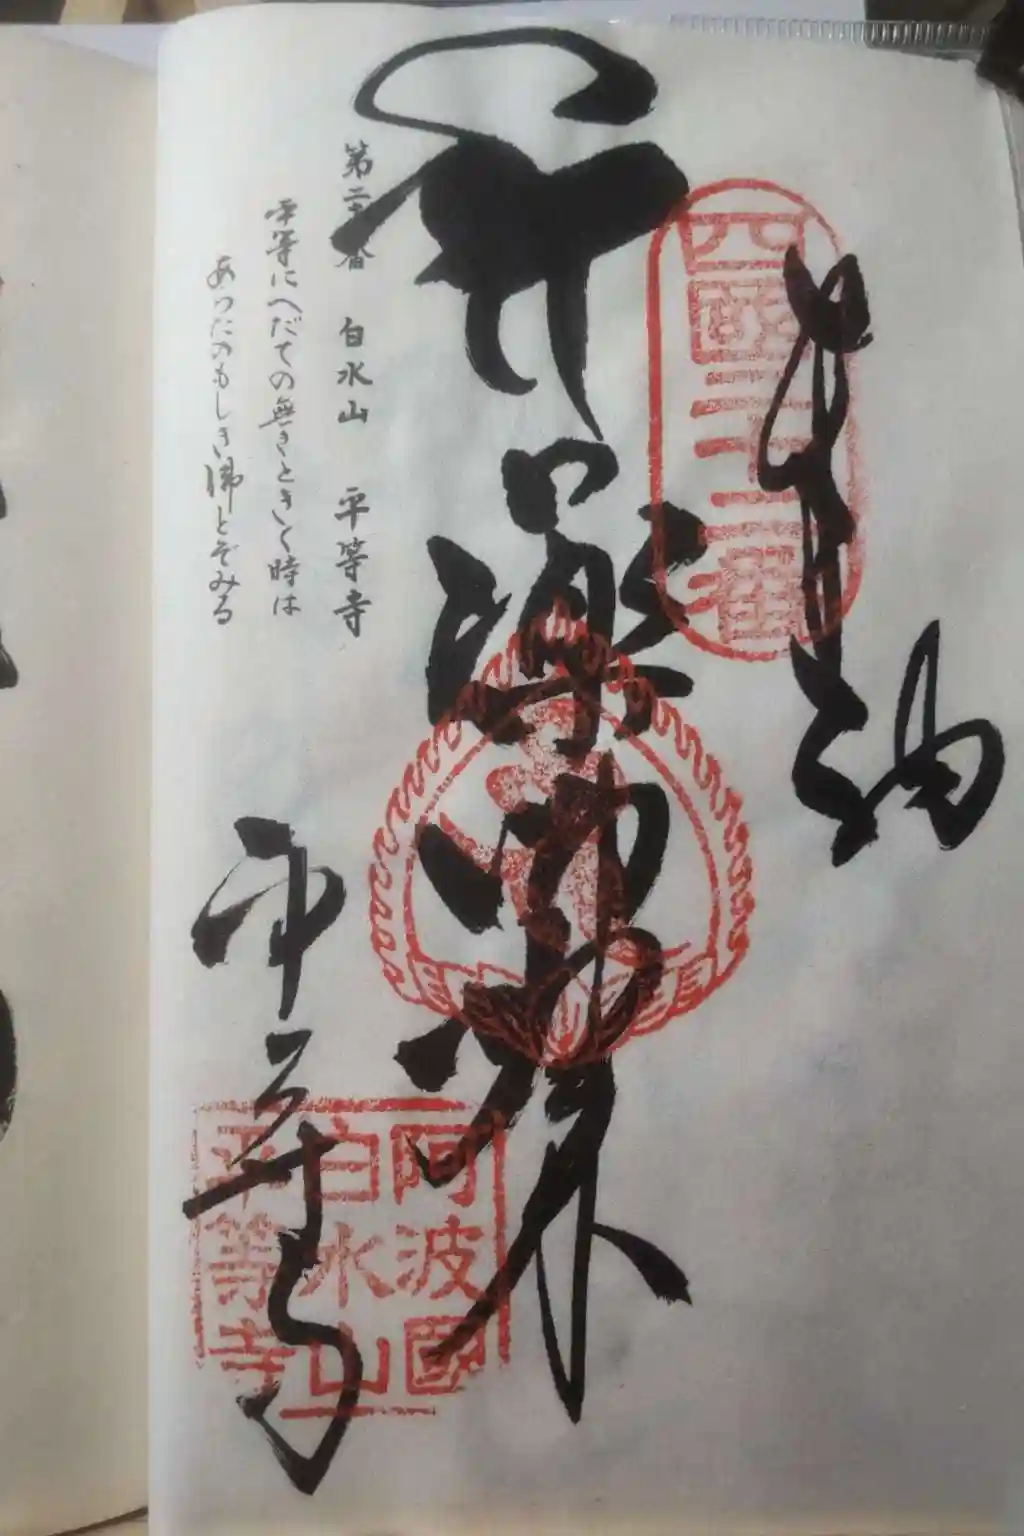 奉納
四國二十二番
薬師如来
阿波國
白水山
平等寺
第二十二番 白水山 平等寺
平等にへだての無きときく時は
あらたのもしき佛とぞみる
平等寺